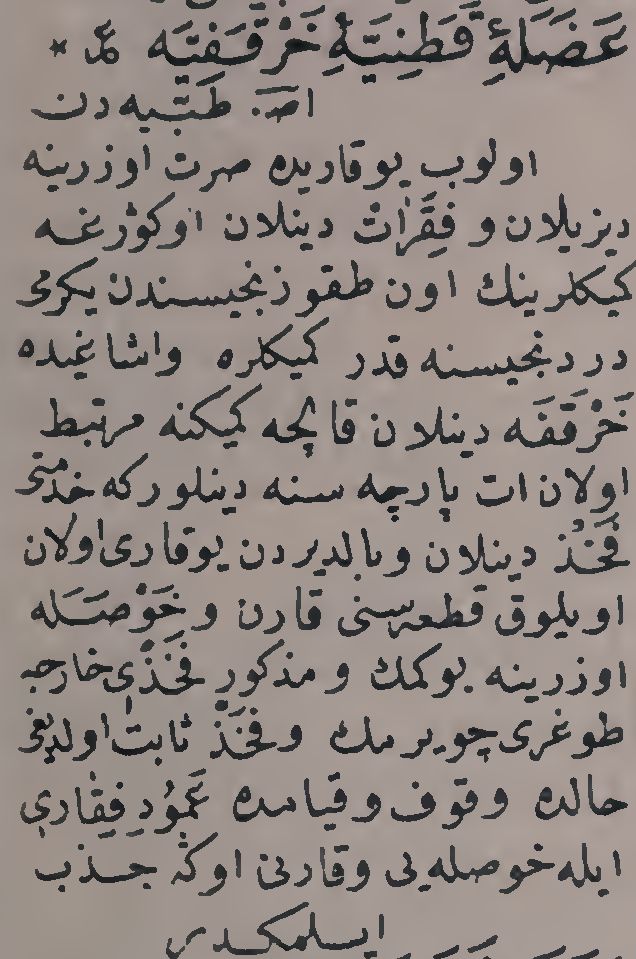 عَضَلَۀِ قَطَنِیَّۀِ خَرْقَفِیَّه *
اص. طبّیه دن
اولوب یوقاریده صرت اوزرینه
دیزیلان و فِقَرَاتْ دینلان اوکورغه
کیکلرینك اون طقوزنجیسندن یکرمی
دردنجیسنه قدر کمیکلره واشاغیده
خَرْقَفَه دینلان قالچه کمیکنه مرتبط
اولان ات پارچه سنه دینلورکه خدمتی
فَخَذْ دینلان وبالدیردن یوقاری اولان
اویلوق قطعه سنی قارن و حَوْصَلَه
اوزرینه بوکمك و مذکور فَخَذی خارجه
طوغری چویرمك وفَخَذْ ثابت اولدیغی
حالده وقوف وقیامده عَمُودِ فِقاری
ایله حوصله یی وقارنی اوکه جذب
ایلمکدر